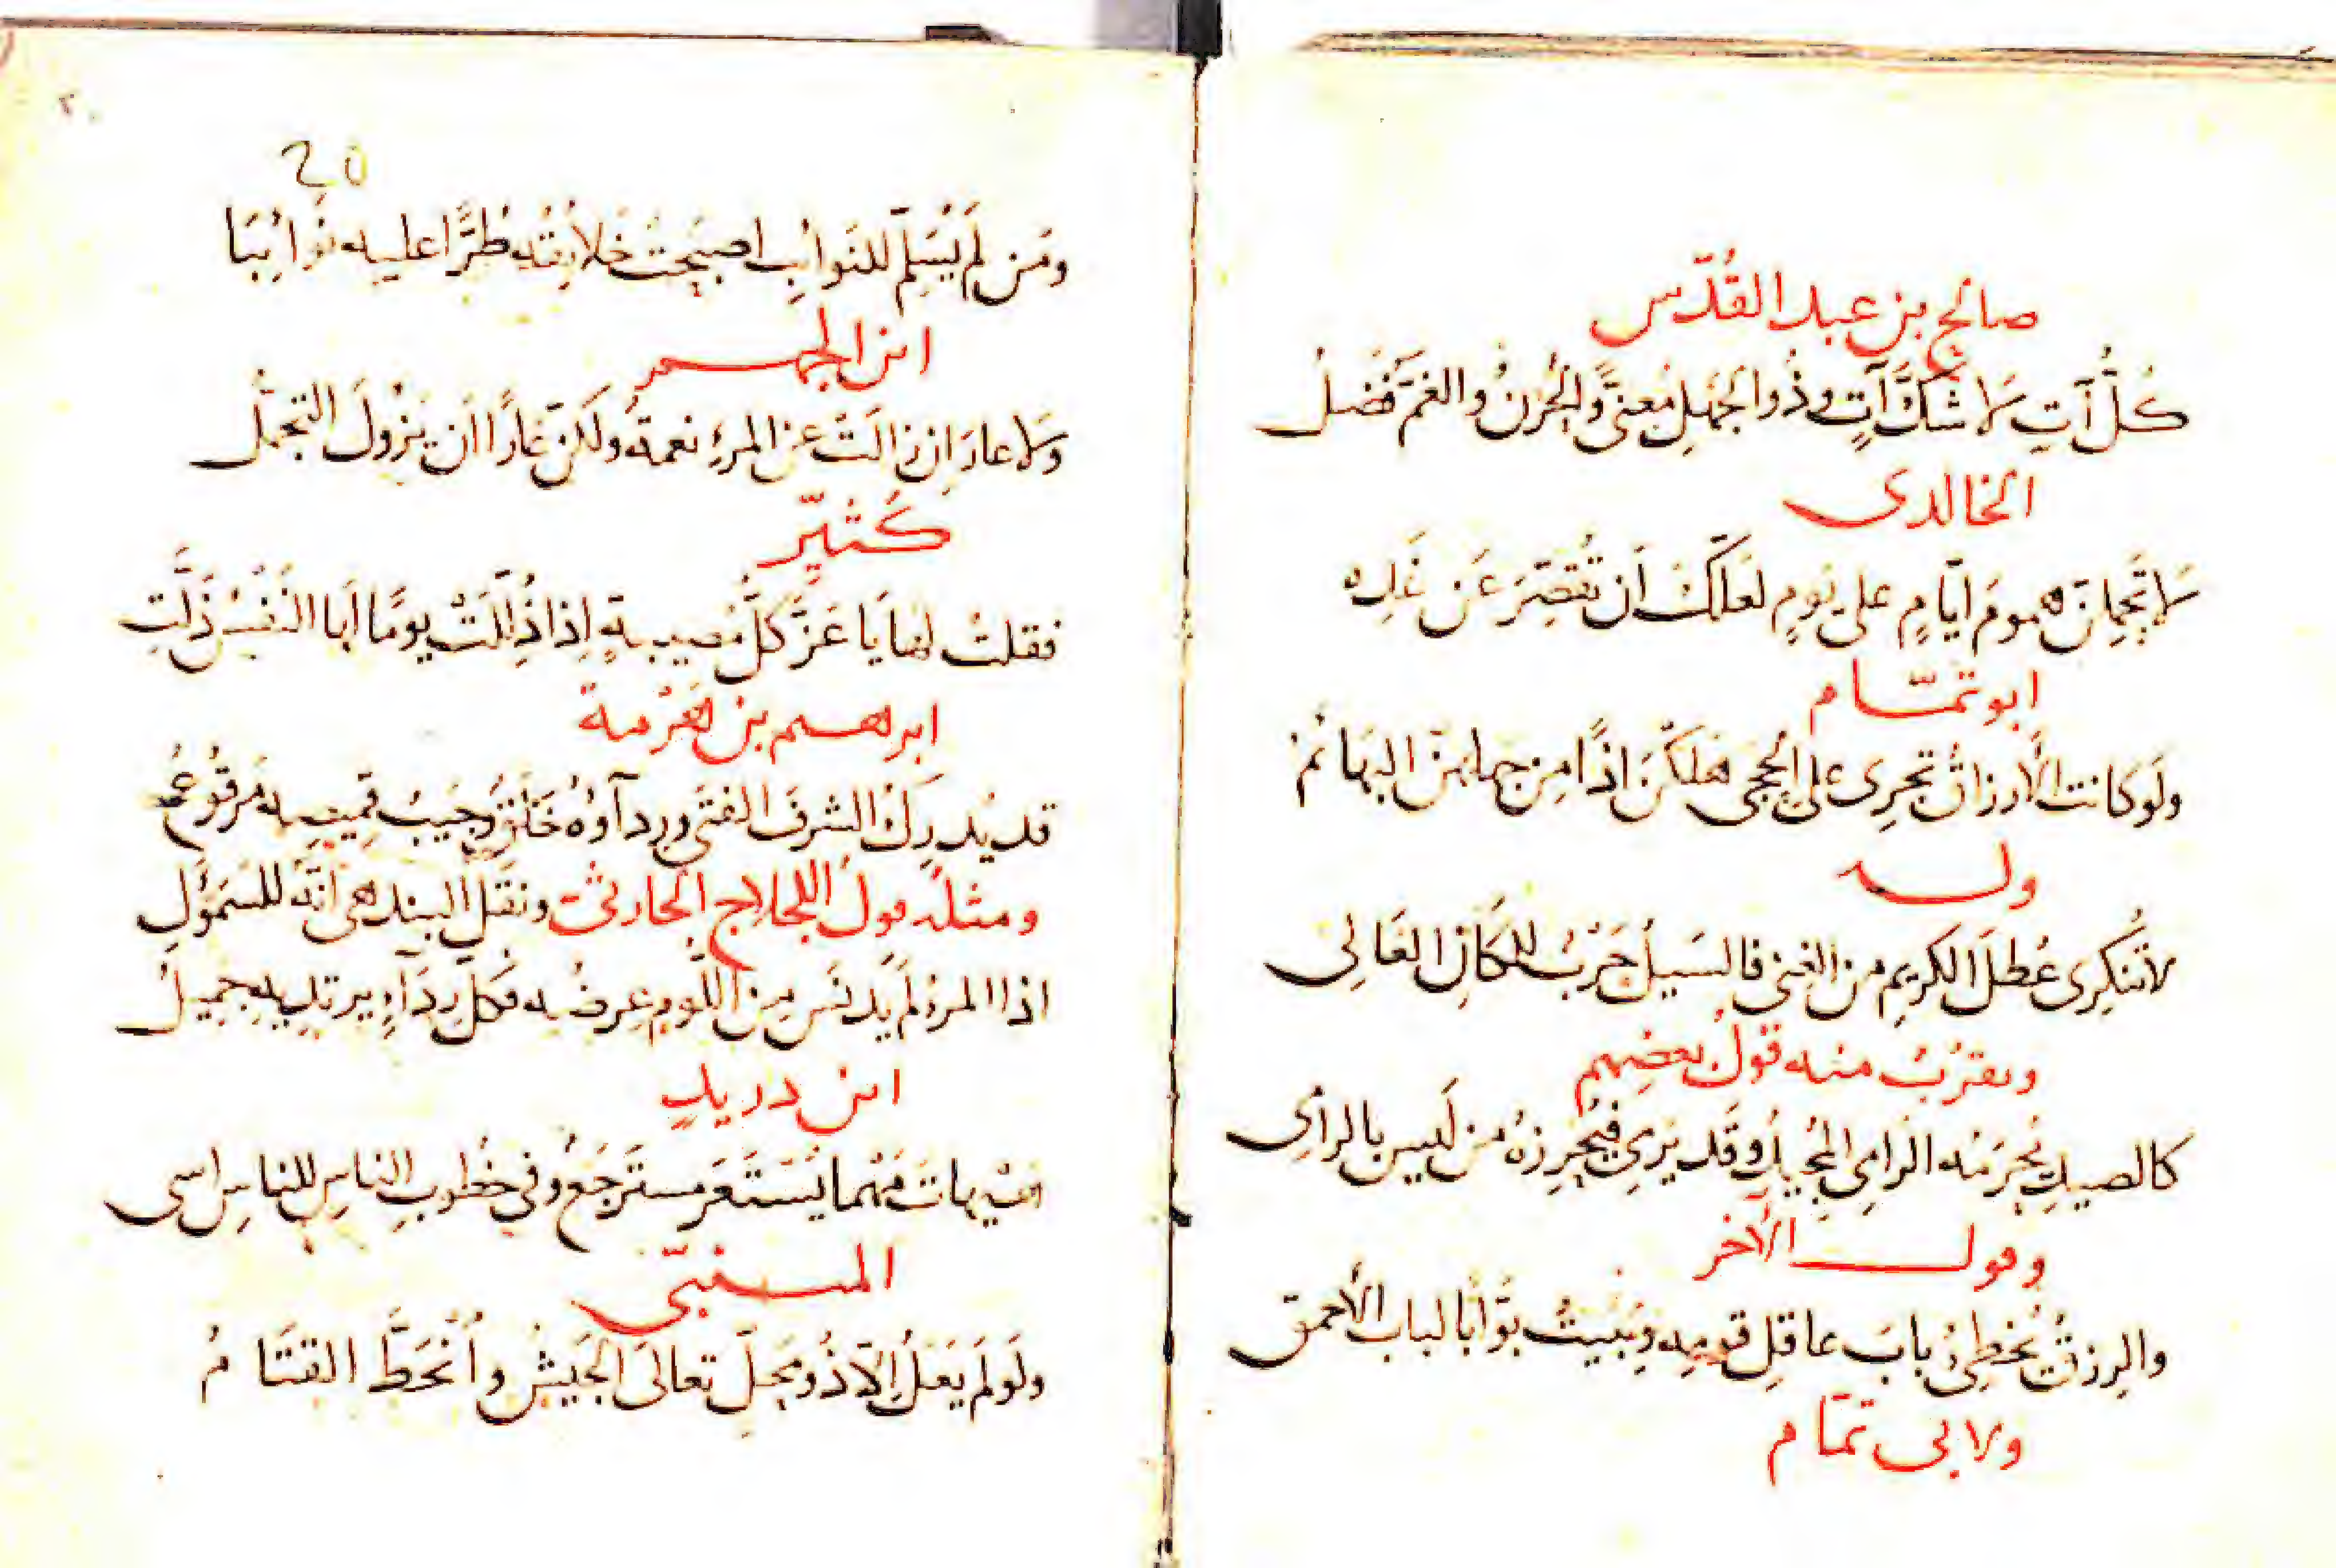 صالح بن عبد القُدّس
كُلُّ آتٍ لا شكَّ آتٍ وذُو الجهلِ مُعنىًّ والحُزنُ والغمّ فَضلُ
الخالدى
لا تحمِلنّ همومَ ايّامٍ على يومٍ لعَلّكَ اَن تُقصّرَ عَن غَدِه
ابو تمّام
ولَو كانت الأرزاقُ تجرِى على الحِجى هَلَكنَ اذًا مِن جهلهنّ البهائمُ
وله
لا تُنكِرى عُطلَ الكريمِ من الغِنى فالسّيلُ حَربٌ للمكانِ العَالى
ويقرُبُ منه قولُ بعضِهم
كالصيدِ يُحرَمُه الرامِى المُجيدُ وقَد يَرمِى فيُحرِزهُ من لَيس بالرامِى
وقول الآخر
والرزقُ يُخطِئُ بابَ عاقِلِ قومِه ويَبيتُ بوّابًا لباب الأحمق
ولابى تمّام
٢٠
20
ومَن لَم يُسَلِّم للنَوائِب اصبحَت خَلائِقُه طُرًّا عليه نَوائِبَا
ابن الجهم
ولا عارَ اِن زالَت عن المرءِ نعمةٌ ولكنّ عَارًا اَن يزُولَ التجمُّل
كُثيّر
فقلتُ لها يا عَزَّ كلُّ مُصيبةٍ اِذا ذُلِّلَتْ يومًا لها النَفْسُ ذَلَّتِ
ابرهيم بن هَرْمة
قد يُدرِكُ الشرفَ الفتى ورِدآؤُهُ خَلَقٌ وجَيبُ قميصِه مَرقُوعُ
ومثلُه قولُ اللجلاج الحارثىّ ونقَلَ البيندهى أنّه للسَمَوْءَل
اذا المرءُ لَم يدنَس مِنَ اللُّومِ عِرضُه فكلّ رِدَآءٍ يرتديه جميلُ
ابن دريدٍ
هَيْهاتَ مَهْما يُسْتَعَر مسترجَعُ وفى خُطوبِ الناسِ للناسِ اسى
المتنبّى
ولَو لَم يَعْلُ اِلّا ذُو مَحلٍّ تعالَى الجَيشُ واُنْحَطَّ القتَامُ